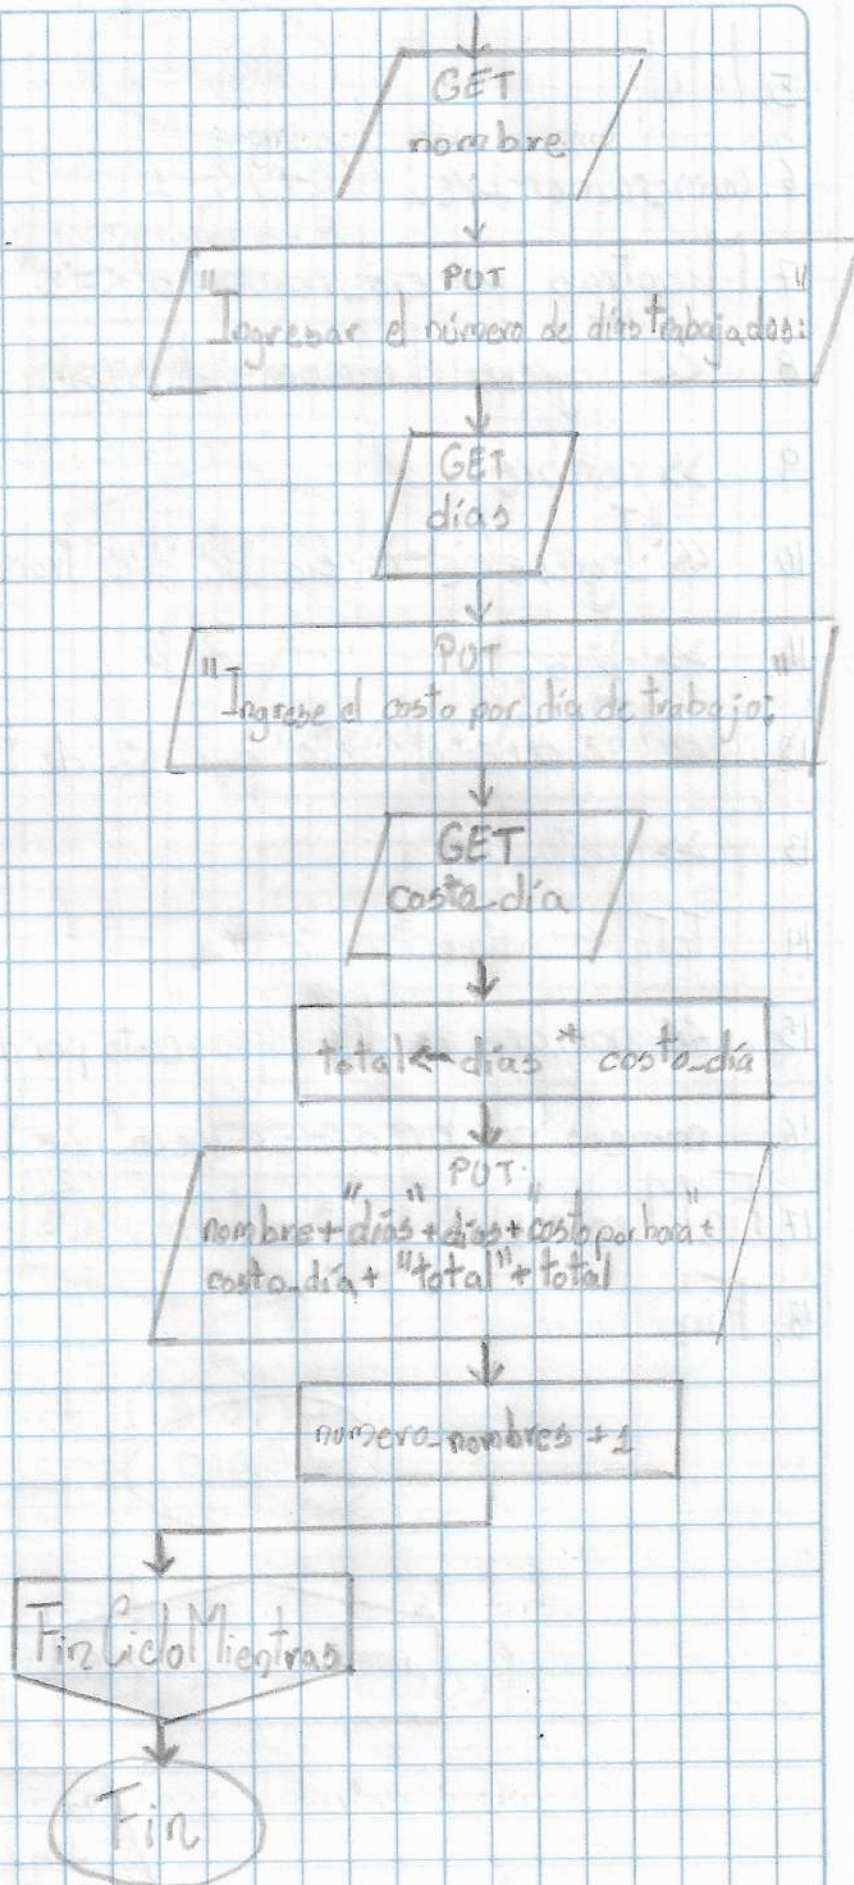 GET
nombre
PUT
"Ingresar el número de días trabajados:"
GET
días
PUT
"Ingrese el costo por día de trabajo:"
GET
costo_día
total ← días * costo_día
PUT
nombre + "días" + días + "costo por hora" +
costo_día + "total" + total
numero_nombres + 1
Fin Ciclo Mientras
Fin